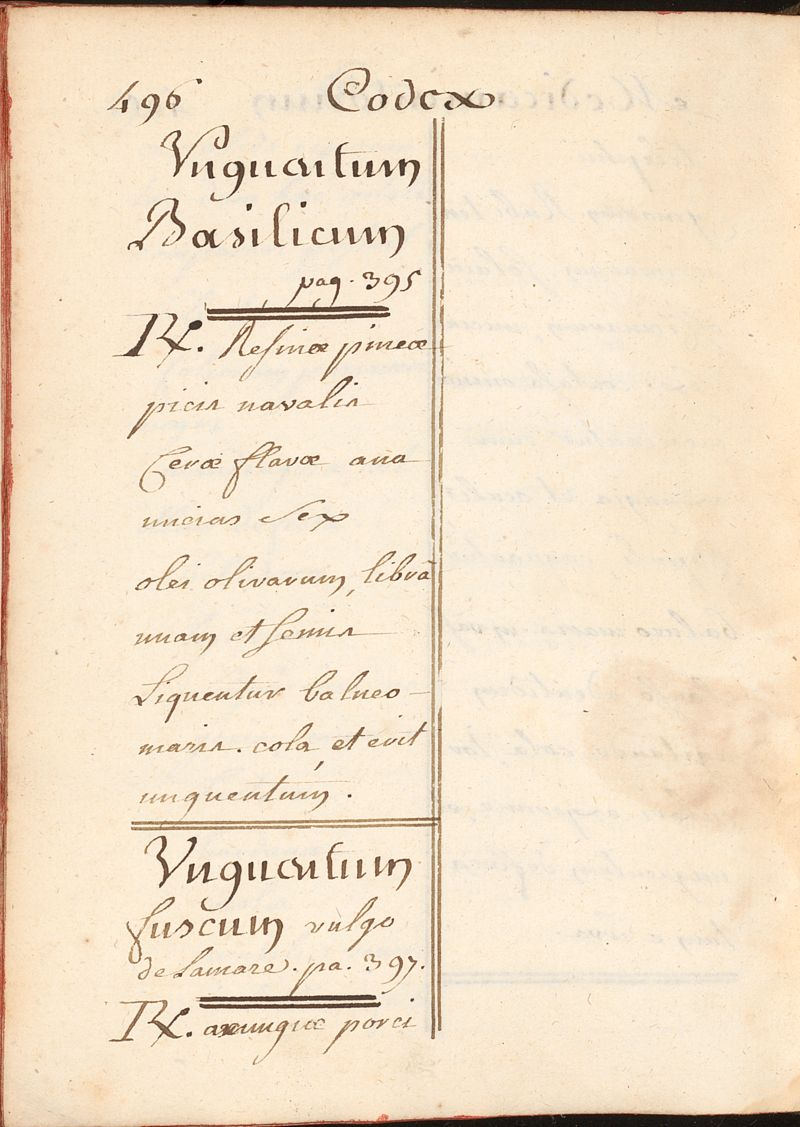 496 Codex
Unguentum
Basilicum
pag. 395
Rx. Resinæ pineæ
picis navalis
Ceræ flavæ ana
uncias sex
olei olivarum, librā
unam et semis
Liquentur balneo
maris. cola, et erit
unguentum.
Unguentum
fuscum vulgo
de Lamare. pa. 397.
Rx. axungiæ porci